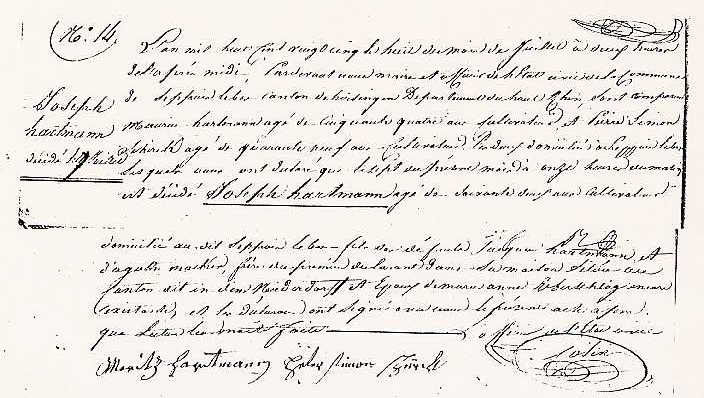 N.° 14.
L'an mil huit cent vingt cinq le huit du mois de Juillet à deux heures
de l'après midi, Pardevant nous maire et officier de l'Etat civil de la Commune
de Seppois le bas canton de hirsingen Département du haut Rhin, sont comparus
Joseph
hartmann
décédé le 7 Juillet
Maurice hartmann agé de Cinquante quatre ans Cultivateur, et Pierre Simon
agé de quarante neuf ans Cultivateur, les deux domiciliés à Seppois le bas
Lesquels nous ont déclaré que le sept du présent mois à onze heures du matin
est décédé Joseph hartmann agé de Soixante deux ans Cultivateur
domicilié au dit Seppois le bas fils de défunts Jacques hartmann et
d'agathe frère du premier déclarant dans sa maison située au
Canton dit in den Niederdorff et Epoux de marie anne encore
existante, et les déclarans ont signé avec nous le présent acte après
que lecture leur en ait été faite
officier de l'Etat civil
Moritz Hartmann Peter Simon